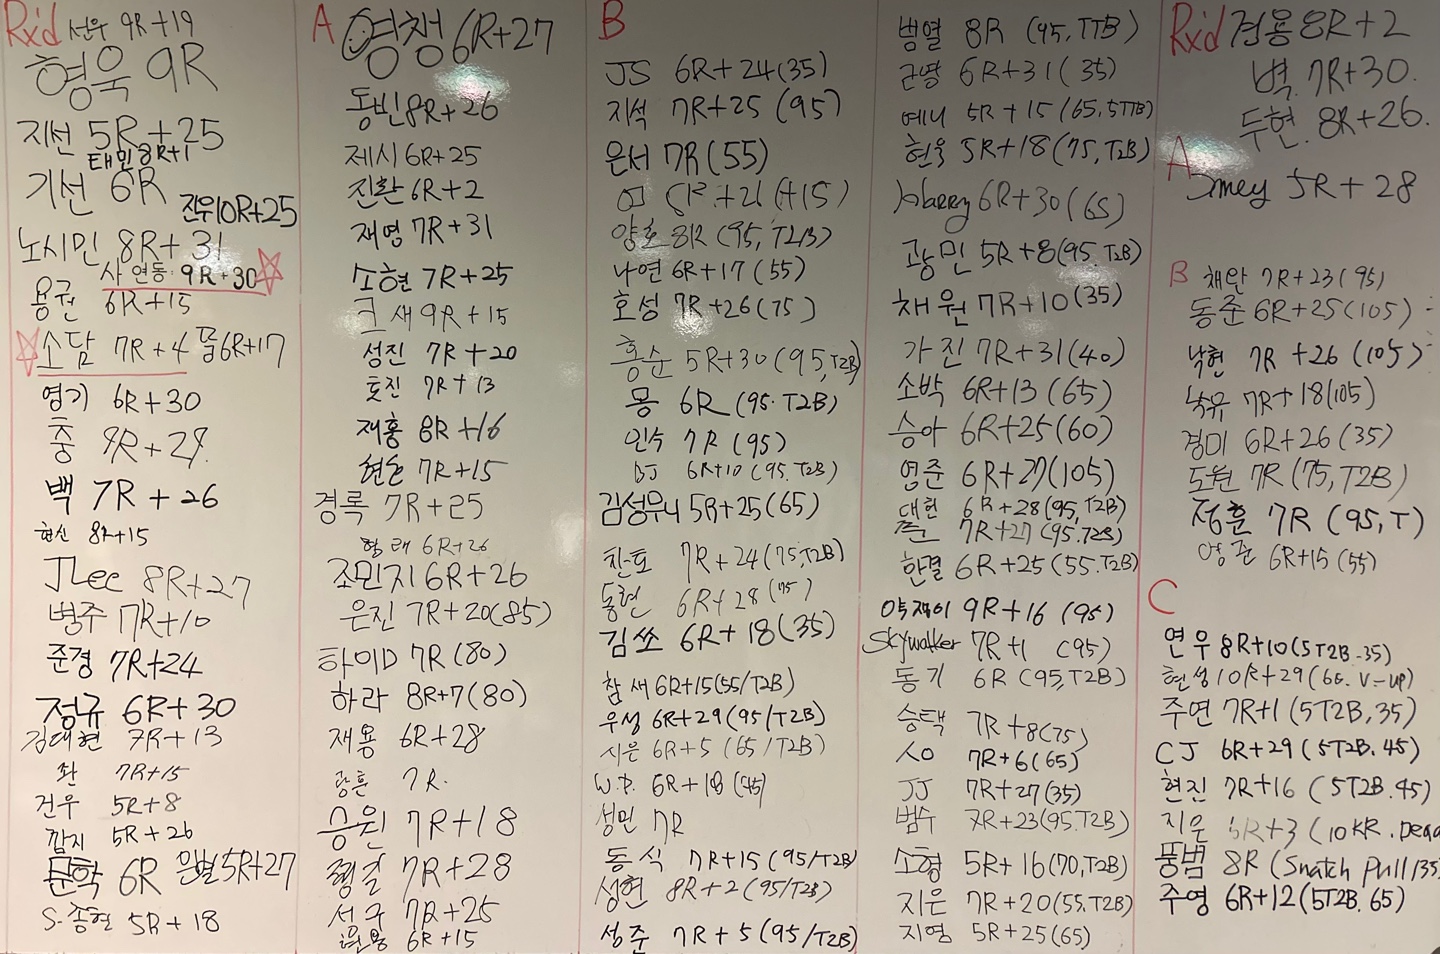 Rx'd 선우 9R+19
형욱 9R
지선 5R+25
태민 8R+1
기선 6R
진우 10R+25
노시민 8R+31
사 연동: 9R+30
용권 6R+15
소담 7R+4
6R+17
영기 6R+30
충
백 7R+26
현신 8R+15
JLee 8R+27
병주 7R+10
준경 7R+24
정규 6R+30
김대현 7R+13
좌 7R+15
건우 5R+8
깜지 5R+26
문학 6R
은별 5R+27
S-종현 5R+18
A 영챙 6R+27
동빈 8R+26
제시 6R+25
진환 6R+2
재영 7R+31
소현 7R+25
크새 9R+15
성진 7R+20
7R+13
재홍 8R+16
7R+15
경록 7R+25
6R+26
조민지 6R+26
은진 7R+20(85)
하이D 7R(80)
하라 8R+7(80)
재용 6R+28
광훈 7R.
승원 7R+18
7R+28
성구 7R+25
6R+15
B
JS 6R+24(35)
지석 7R+25(95)
은서 7R(55)
양호 8R(95, T2B)
나연 6R+17(55)
호성 7R+26(75)
홍순 5R+30(95, T2B)
몽 6R(95. T2B)
인수 7R(95)
DJ 6R+10(95. T2B)
김성우니 5R+25(65)
찬호 7R+24(75, T2B)
동현 6R+28(75)
김쏘 6R+18(35)
참새 6R+15(55/T2B)
우성 6R+29(95/T2B)
시은 6R+5(65/T2B)
W.P. 6R+18
성민 7R
동식 7R+15(95/T2B)
성현 8R+2(95/T2B)
성준 7R+5(95/T2B)
병열 8R(95, TTB)
근영 6R+31(35)
예니 5R+15(65, 5TTB)
현욱 5R+18(75, T2B)
Harry 6R+30(65)
광민 5R+8(95. T2B)
채원 7R+10(35)
가진 7R+31(40)
소박 6R+13(65)
승아 6R+25(60)
영준 6R+27(105)
대현 6R+28(95, T2B)
준 7R+27(95. T2B)
한결 6R+25(55. T2B)
약쟁이 9R+16(95)
Skywalker 7R+1(95)
동기 6R(95, T2B)
승택 7R+8(75)
人O 7R+6(65)
JJ 7R+27(35)
범수 7R+23(95. T2B)
소형 5R+16(70, T2B)
지은 7R+20(55, T2B)
지영 5R+25(65)
Rx'd 경용 8R+2
벽. 7R+30.
두현. 8R+26.
A
5R+28
B 채완 7R+23(95)
동준 6R+25(105)
낙현 7R+26(105)
낙유 7R+18(105)
경미 6R+26(35)
도원 7R(75, T2B)
정훈 7R(95, T)
영준 6R+15(55)
C
연우 8R+10(5T2B-35)
현성 10R+29(65. V-up)
주연 7R+1(5T2B, 35)
CJ 6R+29(5T2B. 45)
현진 7R+16(5T2B. 45)
지우 +3(10KR.
풍범 8R(Snatch Pull 135
주영 6R+12(5T2B. 65)